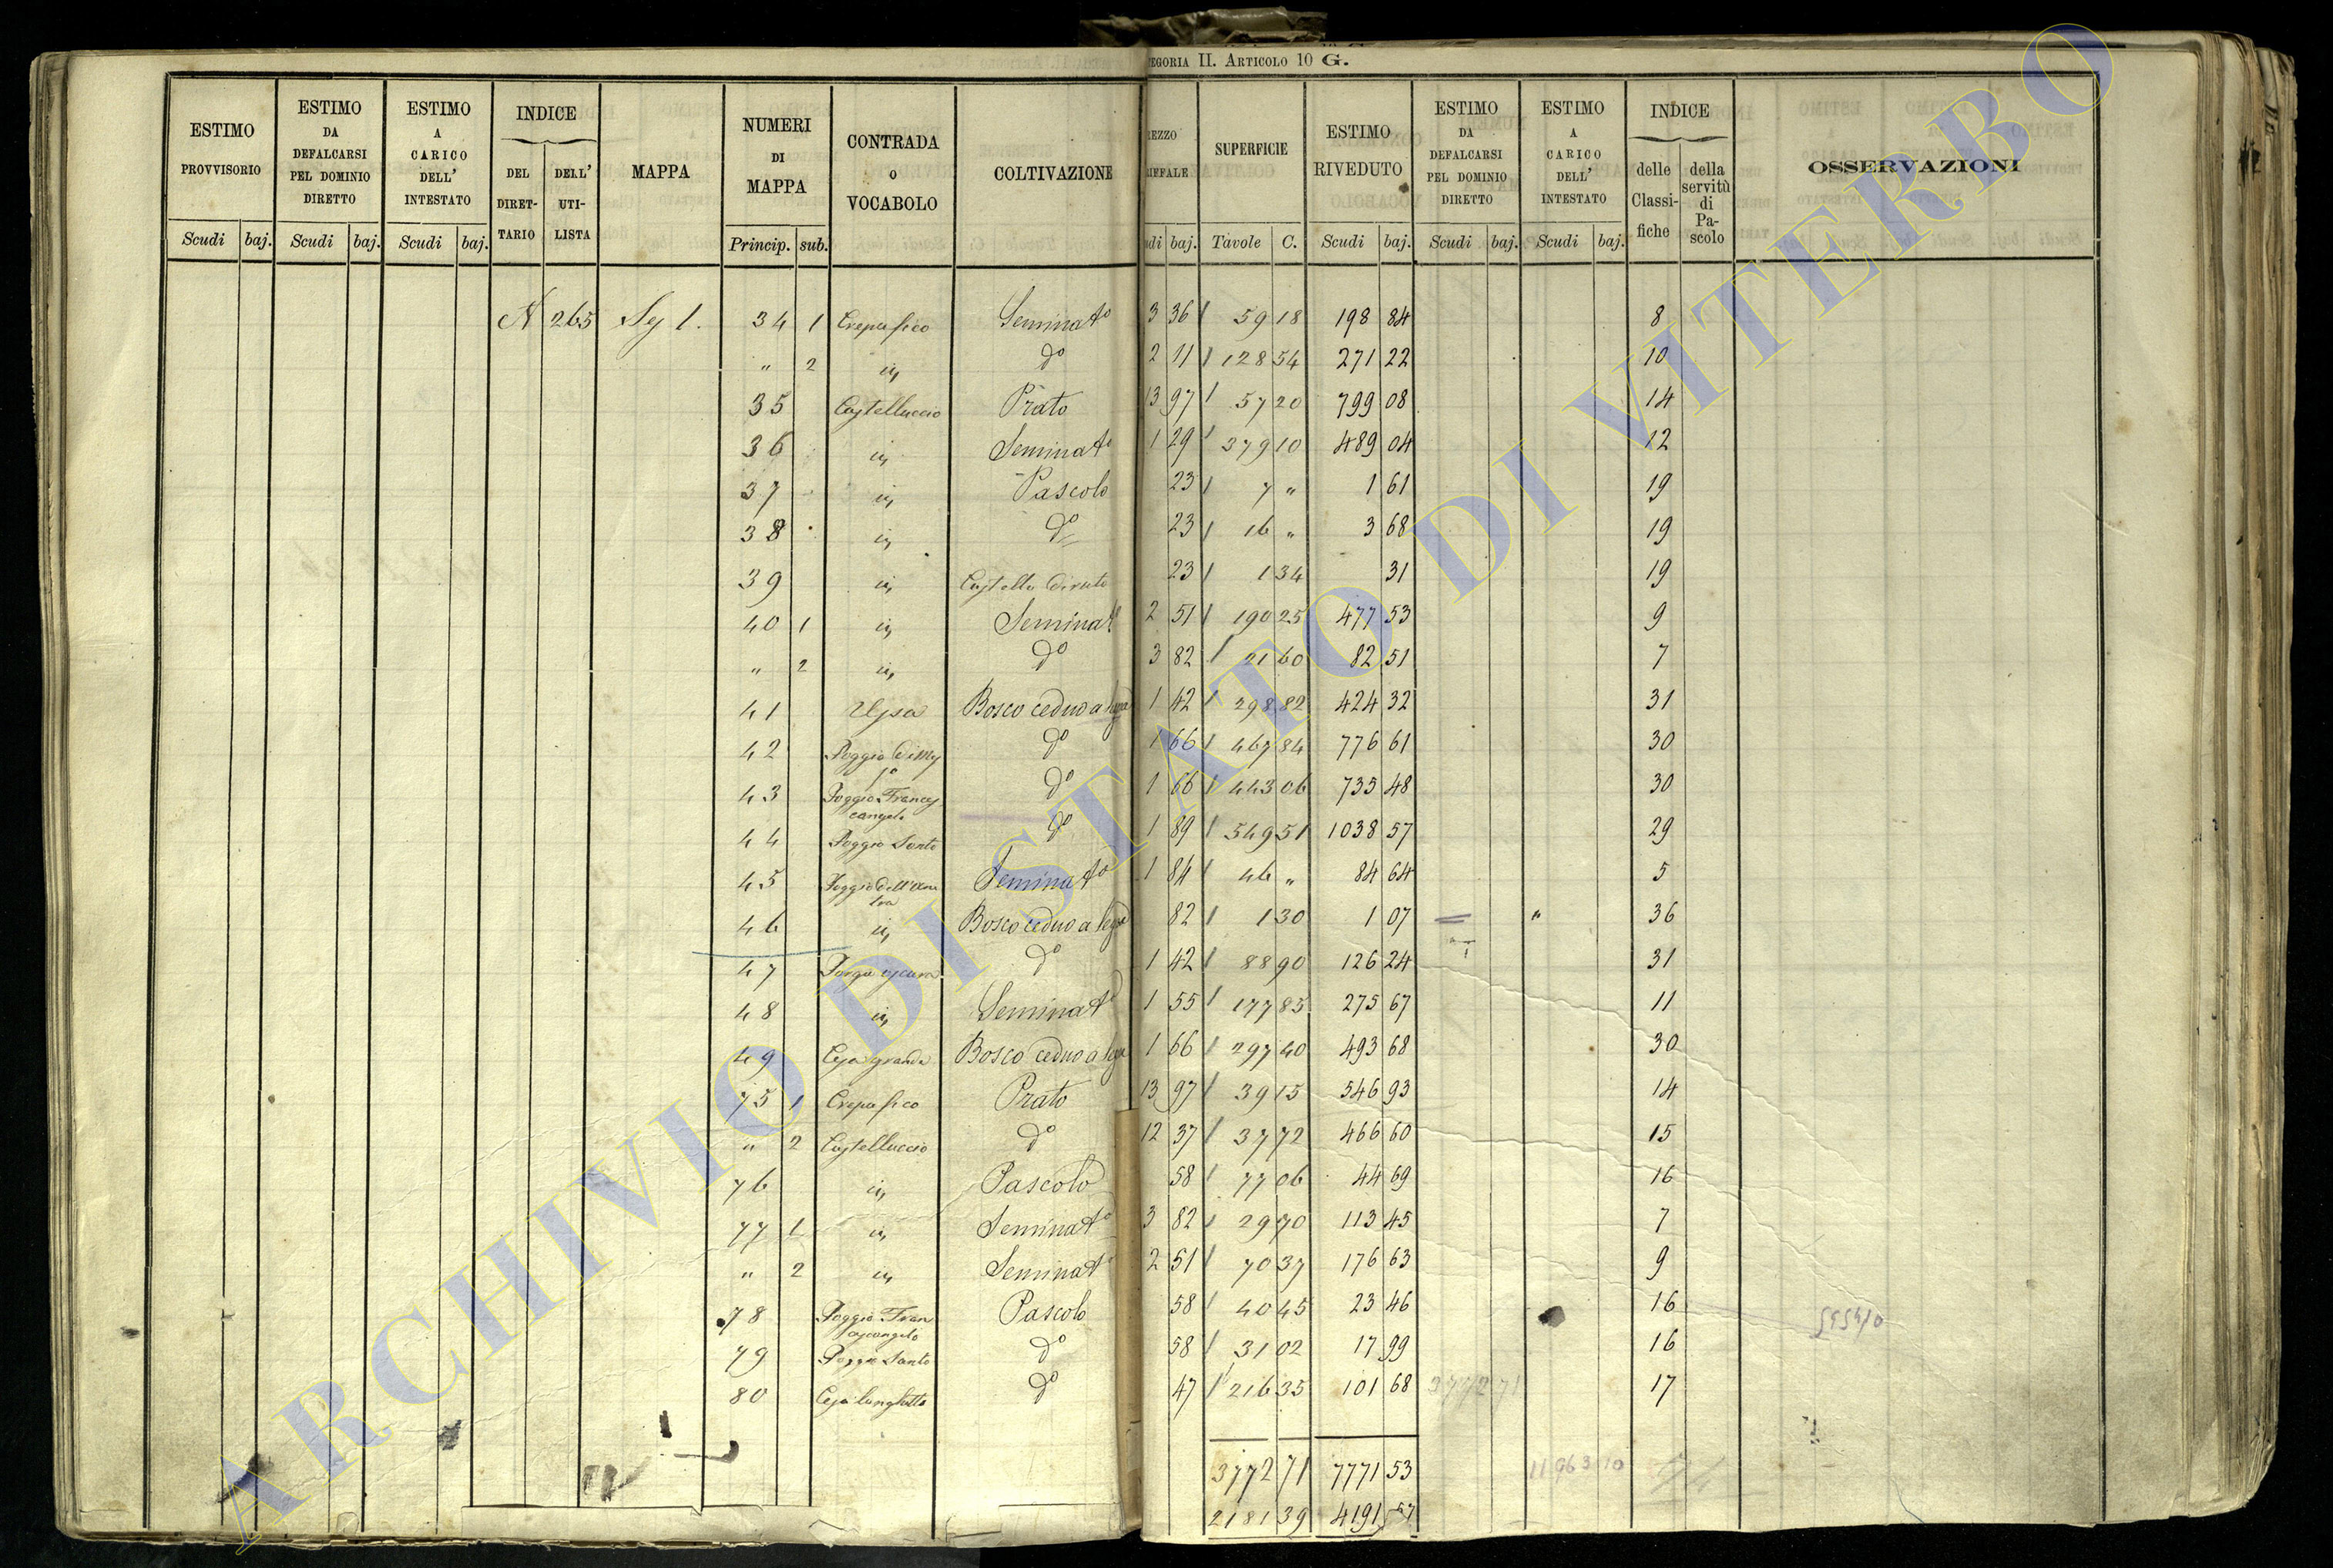 EGORIA II. ARTICOLO 10 G.
ESTIMO PROVVISORIO | ESTIMO DA DEFALCARSI PEL DOMINIO DIRETTO | ESTIMO A CARICO DELL' INTESTATO | INDICE | MAPPA | NUMERI DI MAPPA | CONTRADA O VOCABOLO | COLTIVAZIONE | EZZO IFFALE | SUPERFICIE | ESTIMO RIVEDUTO | ESTIMO DA DEFALCARSI PEL DOMINIO DIRETTO | ESTIMO A CARICO DELL' INTESTATO | INDICE | OSSERVAZIONI
DEL DIRETTARIO | DELL' UTILISTA | delle Classifiche | della servitù di Pascolo
Scudi | baj. | Scudi | baj. | Scudi | baj. | Princip. | sub. | udi | baj. | Tavole | C. | Scudi | baj. | Scudi | baj. | Scudi | baj.
A 265 Sez I. 34 1 Crepafico Seminato 3 36 59 18 198 84 8
" 2 in do 2 11 128 54 271 22 10
35 Castelluccio Prato 13 97 57 20 799 08 14
36 in Seminato 1 29 379 10 489 04 12
37 in Pascolo 23 7 " 1 61 19
38 in do 23 16 " 3 68 19
39 in Castello diruto 23 1 34 31 19
40 1 in Seminato 2 51 190 25 477 53 9
" 2 in do 3 82 21 60 82 51 7
41 Bosco ceduo a 1 42 298 82 424 32 31
42 Poggio di do 1 66 467 84 776 61 30
43 Poggio Francescangelo do 1 66 443 06 735 48 30
44 Poggio Santo do 1 89 549 51 1038 57 29
45 Poggio dell' Seminato 1 84 46 " 84 64 5
46 in Bosco ceduo a 82 1 30 1 07 " 36
47 do 1 42 88 90 126 24 31
48 in Seminato 1 55 177 85 275 67 11
49 grande Bosco ceduo a 1 66 297 40 493 68 30
75 1 Crepafico Prato 13 97 39 15 546 93 14
" 2 Castelluccio do 12 37 37 72 466 60 15
76 in Pascolo 58 77 06 44 69 16
77 1 in Seminato 3 82 29 70 113 45 7
" 2 in Seminato 2 51 70 37 176 63 9
78 Poggio Francescangelo Pascolo 58 40 45 23 46 16
79 Poggio Santo do 58 31 02 17 99 16
80 do 47 216 35 101 68 3772 71 17
3772 71 7771 53 11963 10
2181 39 4191 57
ARCHIVIO DI STATO DI VITERBO